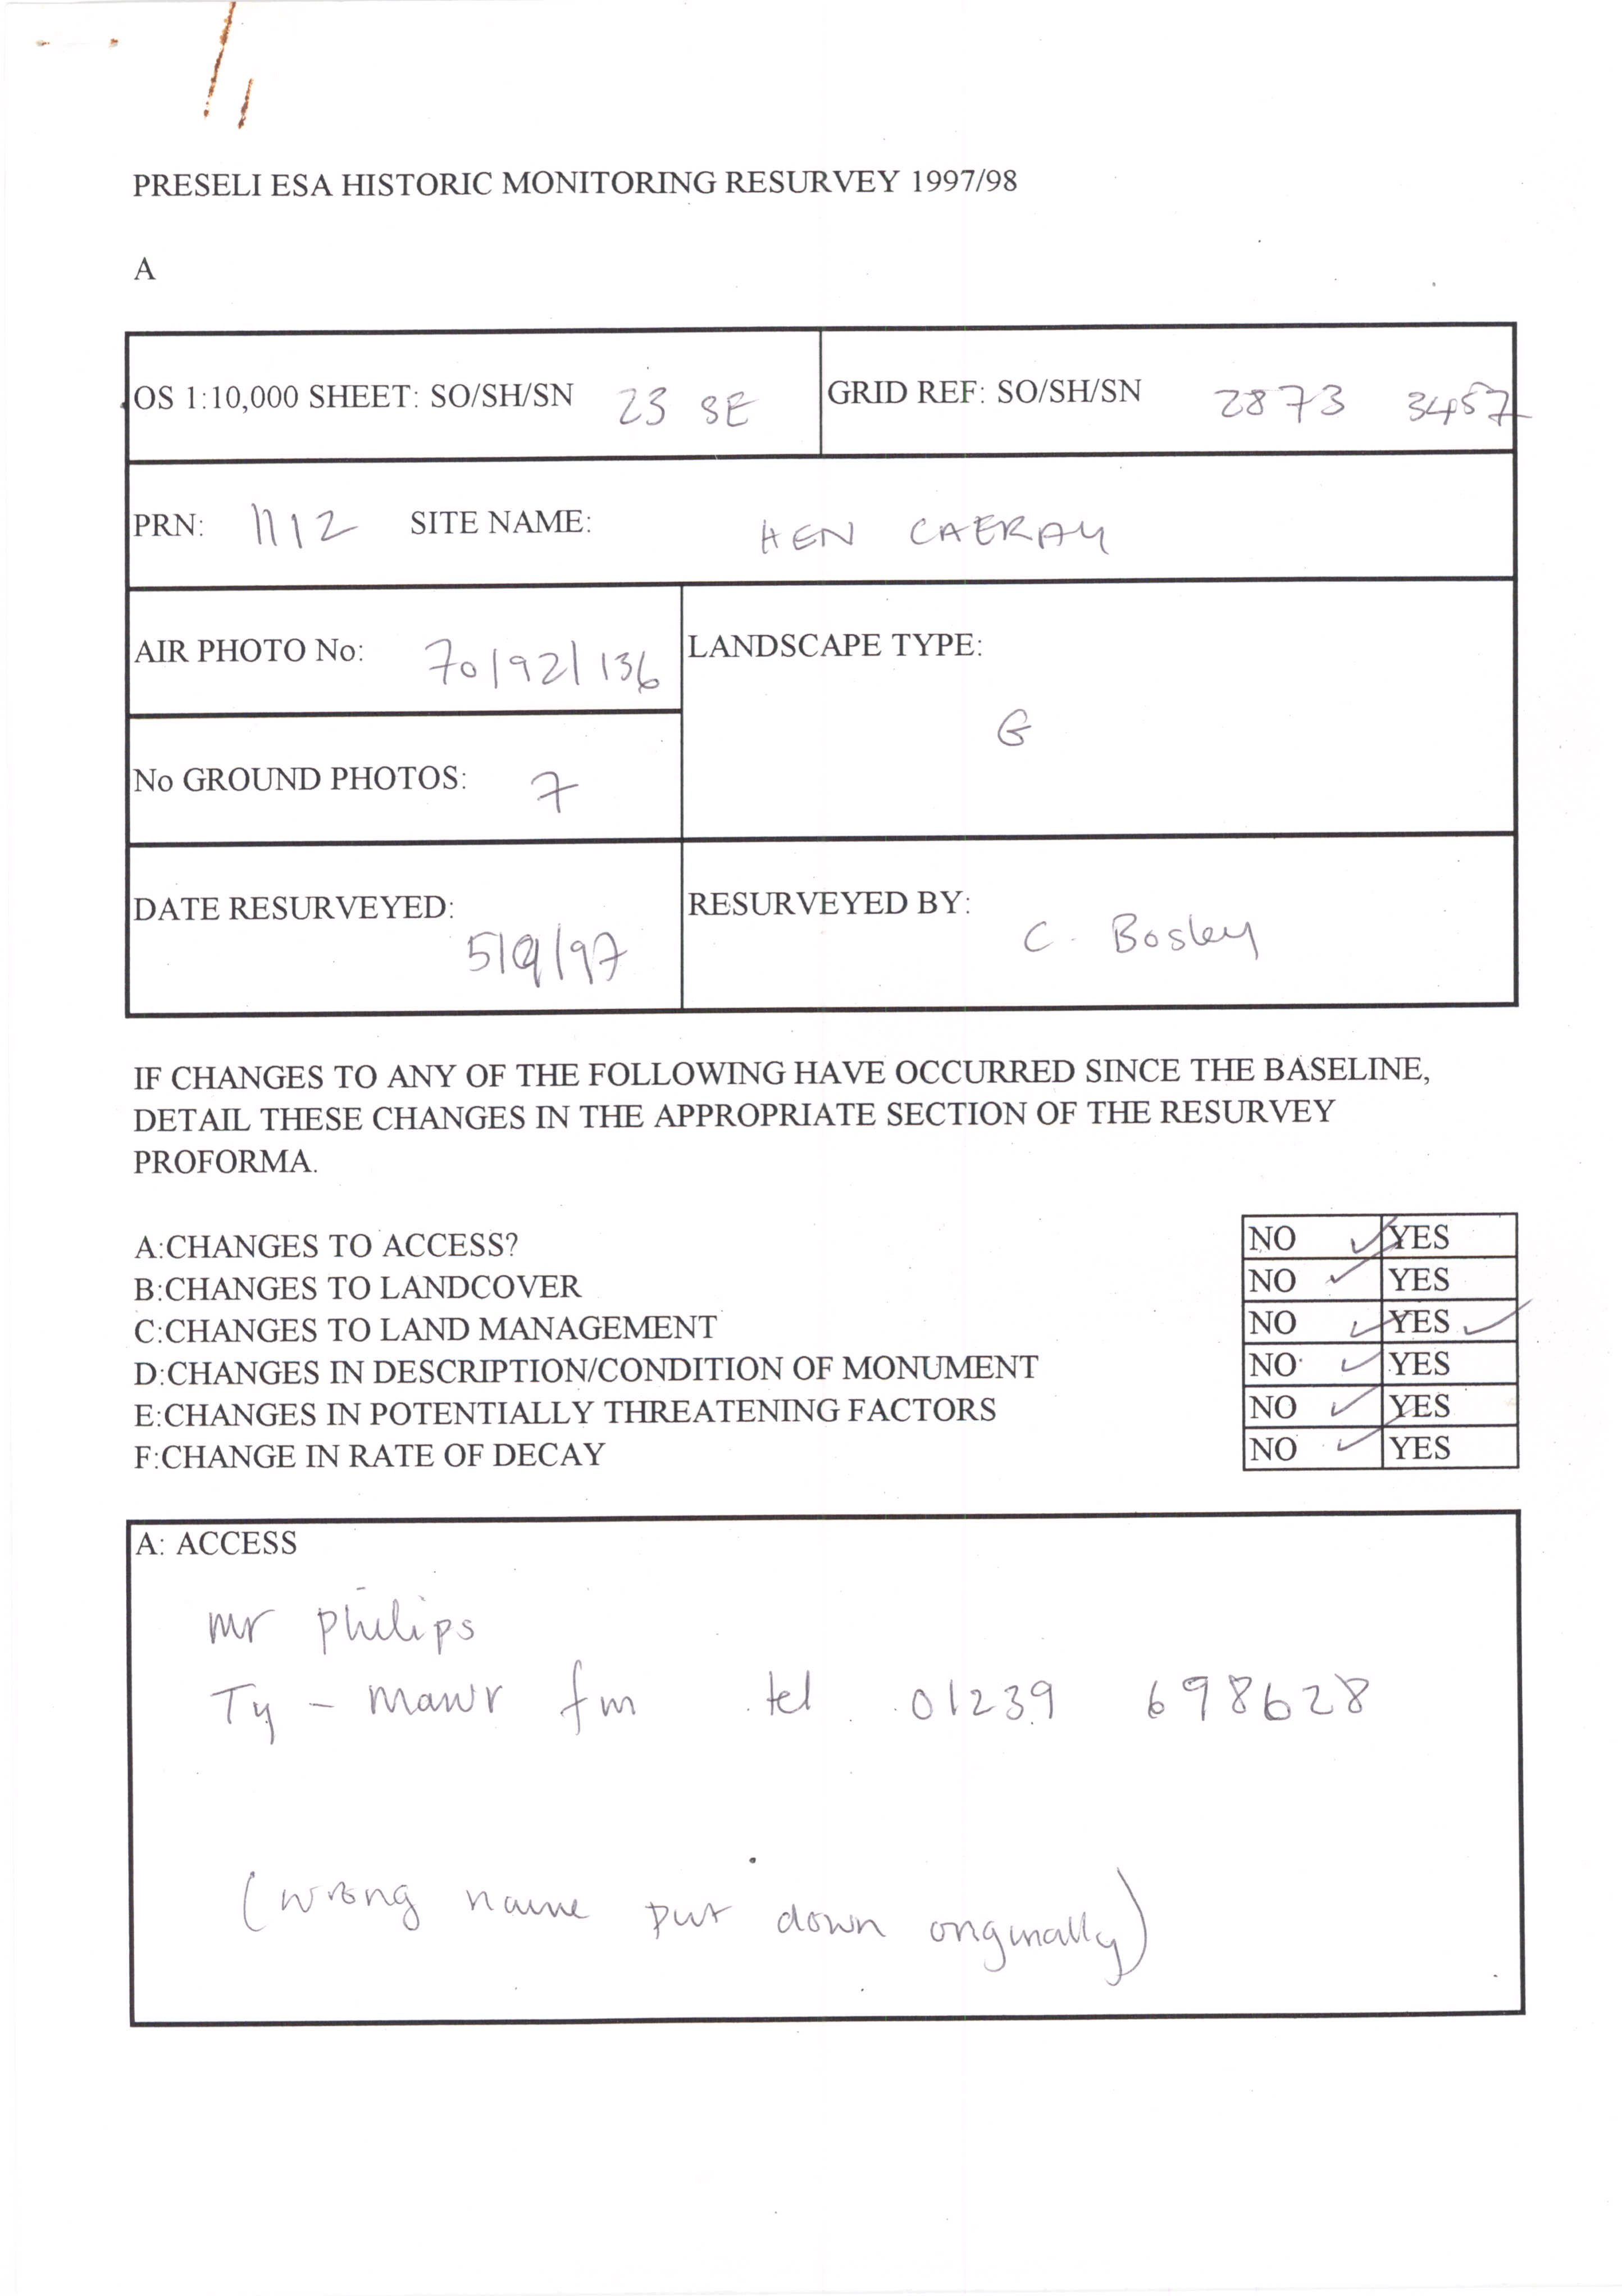 PRESELI ESA HISTORIC MONITORING RESURVEY 1997/98
A
OS 1:10,000 SHEET: SO/SH/SN 23 SE GRID REF: SO/SH/SN 2873 3457
PRN: 1112 SITE NAME: HEN CAERAU
AIR PHOTO No: 70/92/136 LANDSCAPE TYPE:
G
No GROUND PHOTOS: 7
DATE RESURVEYED: 5/9/97 RESURVEYED BY: C. Bosley
IF CHANGES TO ANY OF THE FOLLOWING HAVE OCCURRED SINCE THE BASELINE,
DETAIL THESE CHANGES IN THE APPROPRIATE SECTION OF THE RESURVEY
PROFORMA.
A:CHANGES TO ACCESS? NO ✓ YES
B:CHANGES TO LANDCOVER NO ✓ YES
C:CHANGES TO LAND MANAGEMENT NO ✓ YES ✓
D:CHANGES IN DESCRIPTION/CONDITION OF MONUMENT NO ✓ YES
E:CHANGES IN POTENTIALLY THREATENING FACTORS NO ✓ YES
F:CHANGE IN RATE OF DECAY NO ✓ YES
A: ACCESS
Mr philips
Ty - mawr fm tel 01239 698628
(wrong name put down originally)